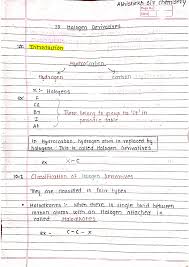 Abhishekh sir chemistry
10 Halogen Derivatives
Introduction
Hydrocarbon
Hydrogen
carbon
X = Halogens
ex
F
Cl
Br
I
At
These belong to group '17' in
periodic table
In hydrocarbon, hydrogen atom is replaced by
halogens. This is called Halogen Derivatives
ex X - C
10.1 Classification of Halogen Derivatives
They are classified in four types
Haloalkanes :- when there is single bond between
carbon atoms with an Halogen attached is
called Haloalkanes
ex - C - C - X